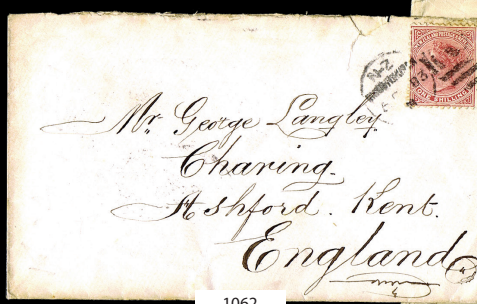 N.Z
ONE SHILLING
Mr. George Langley.
Charing.
Ashford. Kent.
England
1062